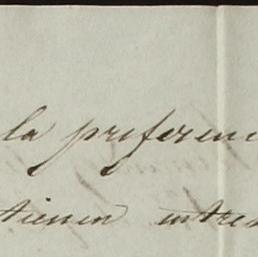 la preferen
tienen intres